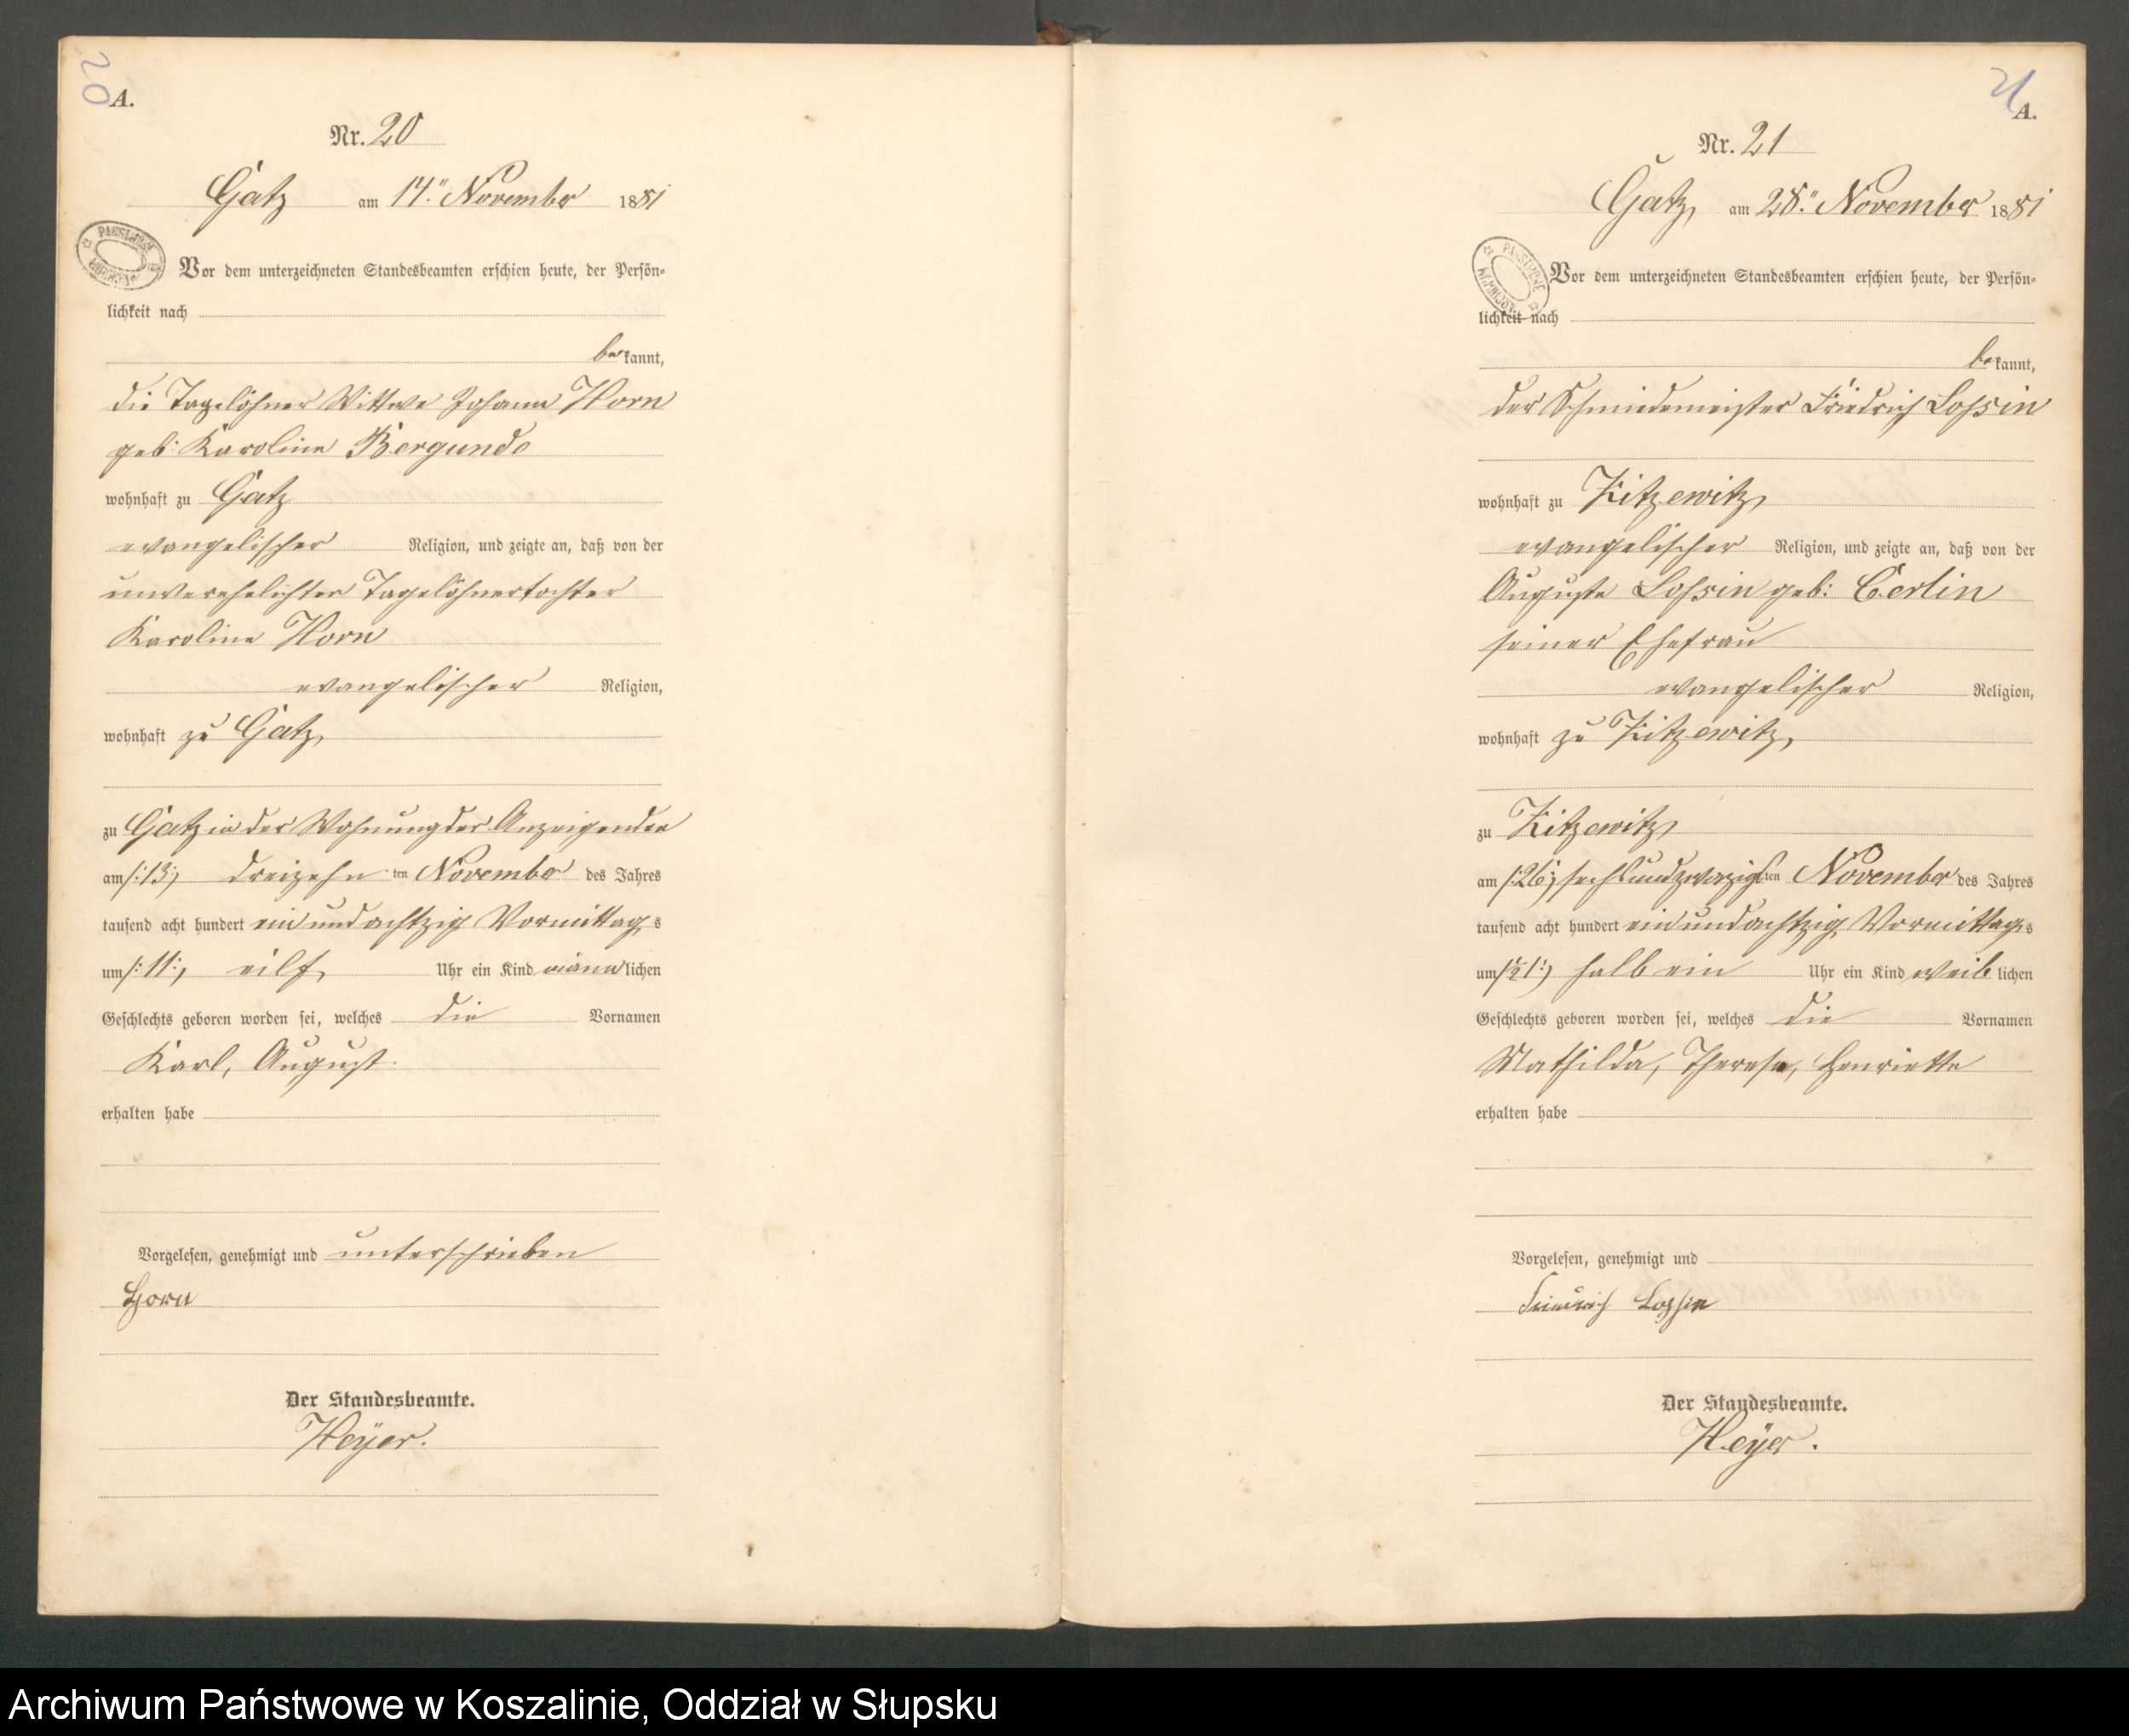 20
A.
Nr. 20
Gatz am 14. November 1881
Vor dem unterzeichneten Standesbeamten erschien heute, der Persön-
lichkeit nach
bekannt,
die Tagelöhner Wittwe Johann Horn
geb: Karoline Bergunde
wohnhaft zu Gatz
evangelischer Religion, und zeigte an, daß von der
unverehelichten Tagelöhnertochter
Karoline Horn
evangelischer Religion,
wohnhaft zu Gatz,
zu Gatz in der Wohnung der Anzeigenden
am /:13:/ dreizehn ten November des Jahres
tausend acht hundert ein und achtzig Vormittags
um /:11:/ eilf Uhr ein Kind männlichen
Geschlechts geboren worden sei, welches die Vornamen
Karl, August
erhalten habe
Vorgelesen, genehmigt und unterschrieben
Horn
Der Standesbeamte.
Heyer.
21
A.
Nr. 21
Gatz, am 28. November 1881
Vor dem unterzeichneten Standesbeamten erschien heute, der Persön-
lichkeit nach
bekannt,
der Schmiedemeister Friedrich Lossin
wohnhaft zu Kitzewitz,
evangelischer Religion, und zeigte an, daß von der
Auguste Lossin geb:
seiner Ehefrau
evangelischer Religion,
wohnhaft zu Kitzewitz,
zu Kitzewitz,
am /:26:/ sechsundzwanzigsten November des Jahres
tausend acht hundert ein und achtzig Vormittags
um /:½1:/ halb ein Uhr ein Kind weiblichen
Geschlechts geboren worden sei, welches die Vornamen
Mathilda, Therese, Henriette
erhalten habe
Vorgelesen, genehmigt und
Friedrich Lossin
Der Standesbeamte.
Heyer.
Archiwum Państwowe w Koszalinie, Oddział w Słupsku